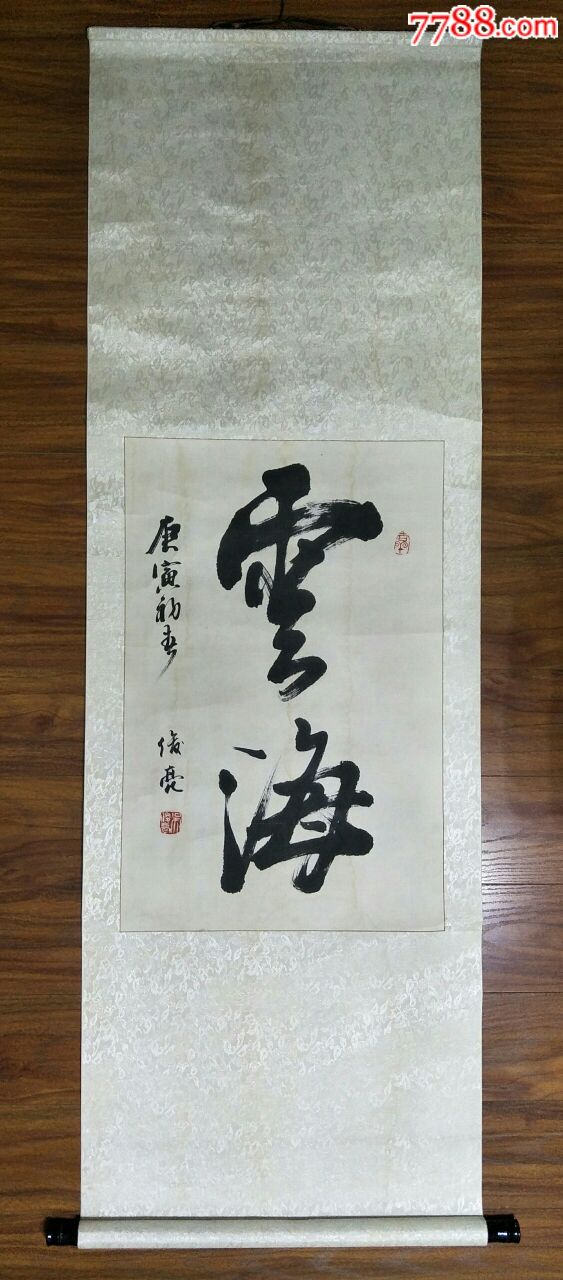 7788.com
雲海
庚寅初春
俊亮